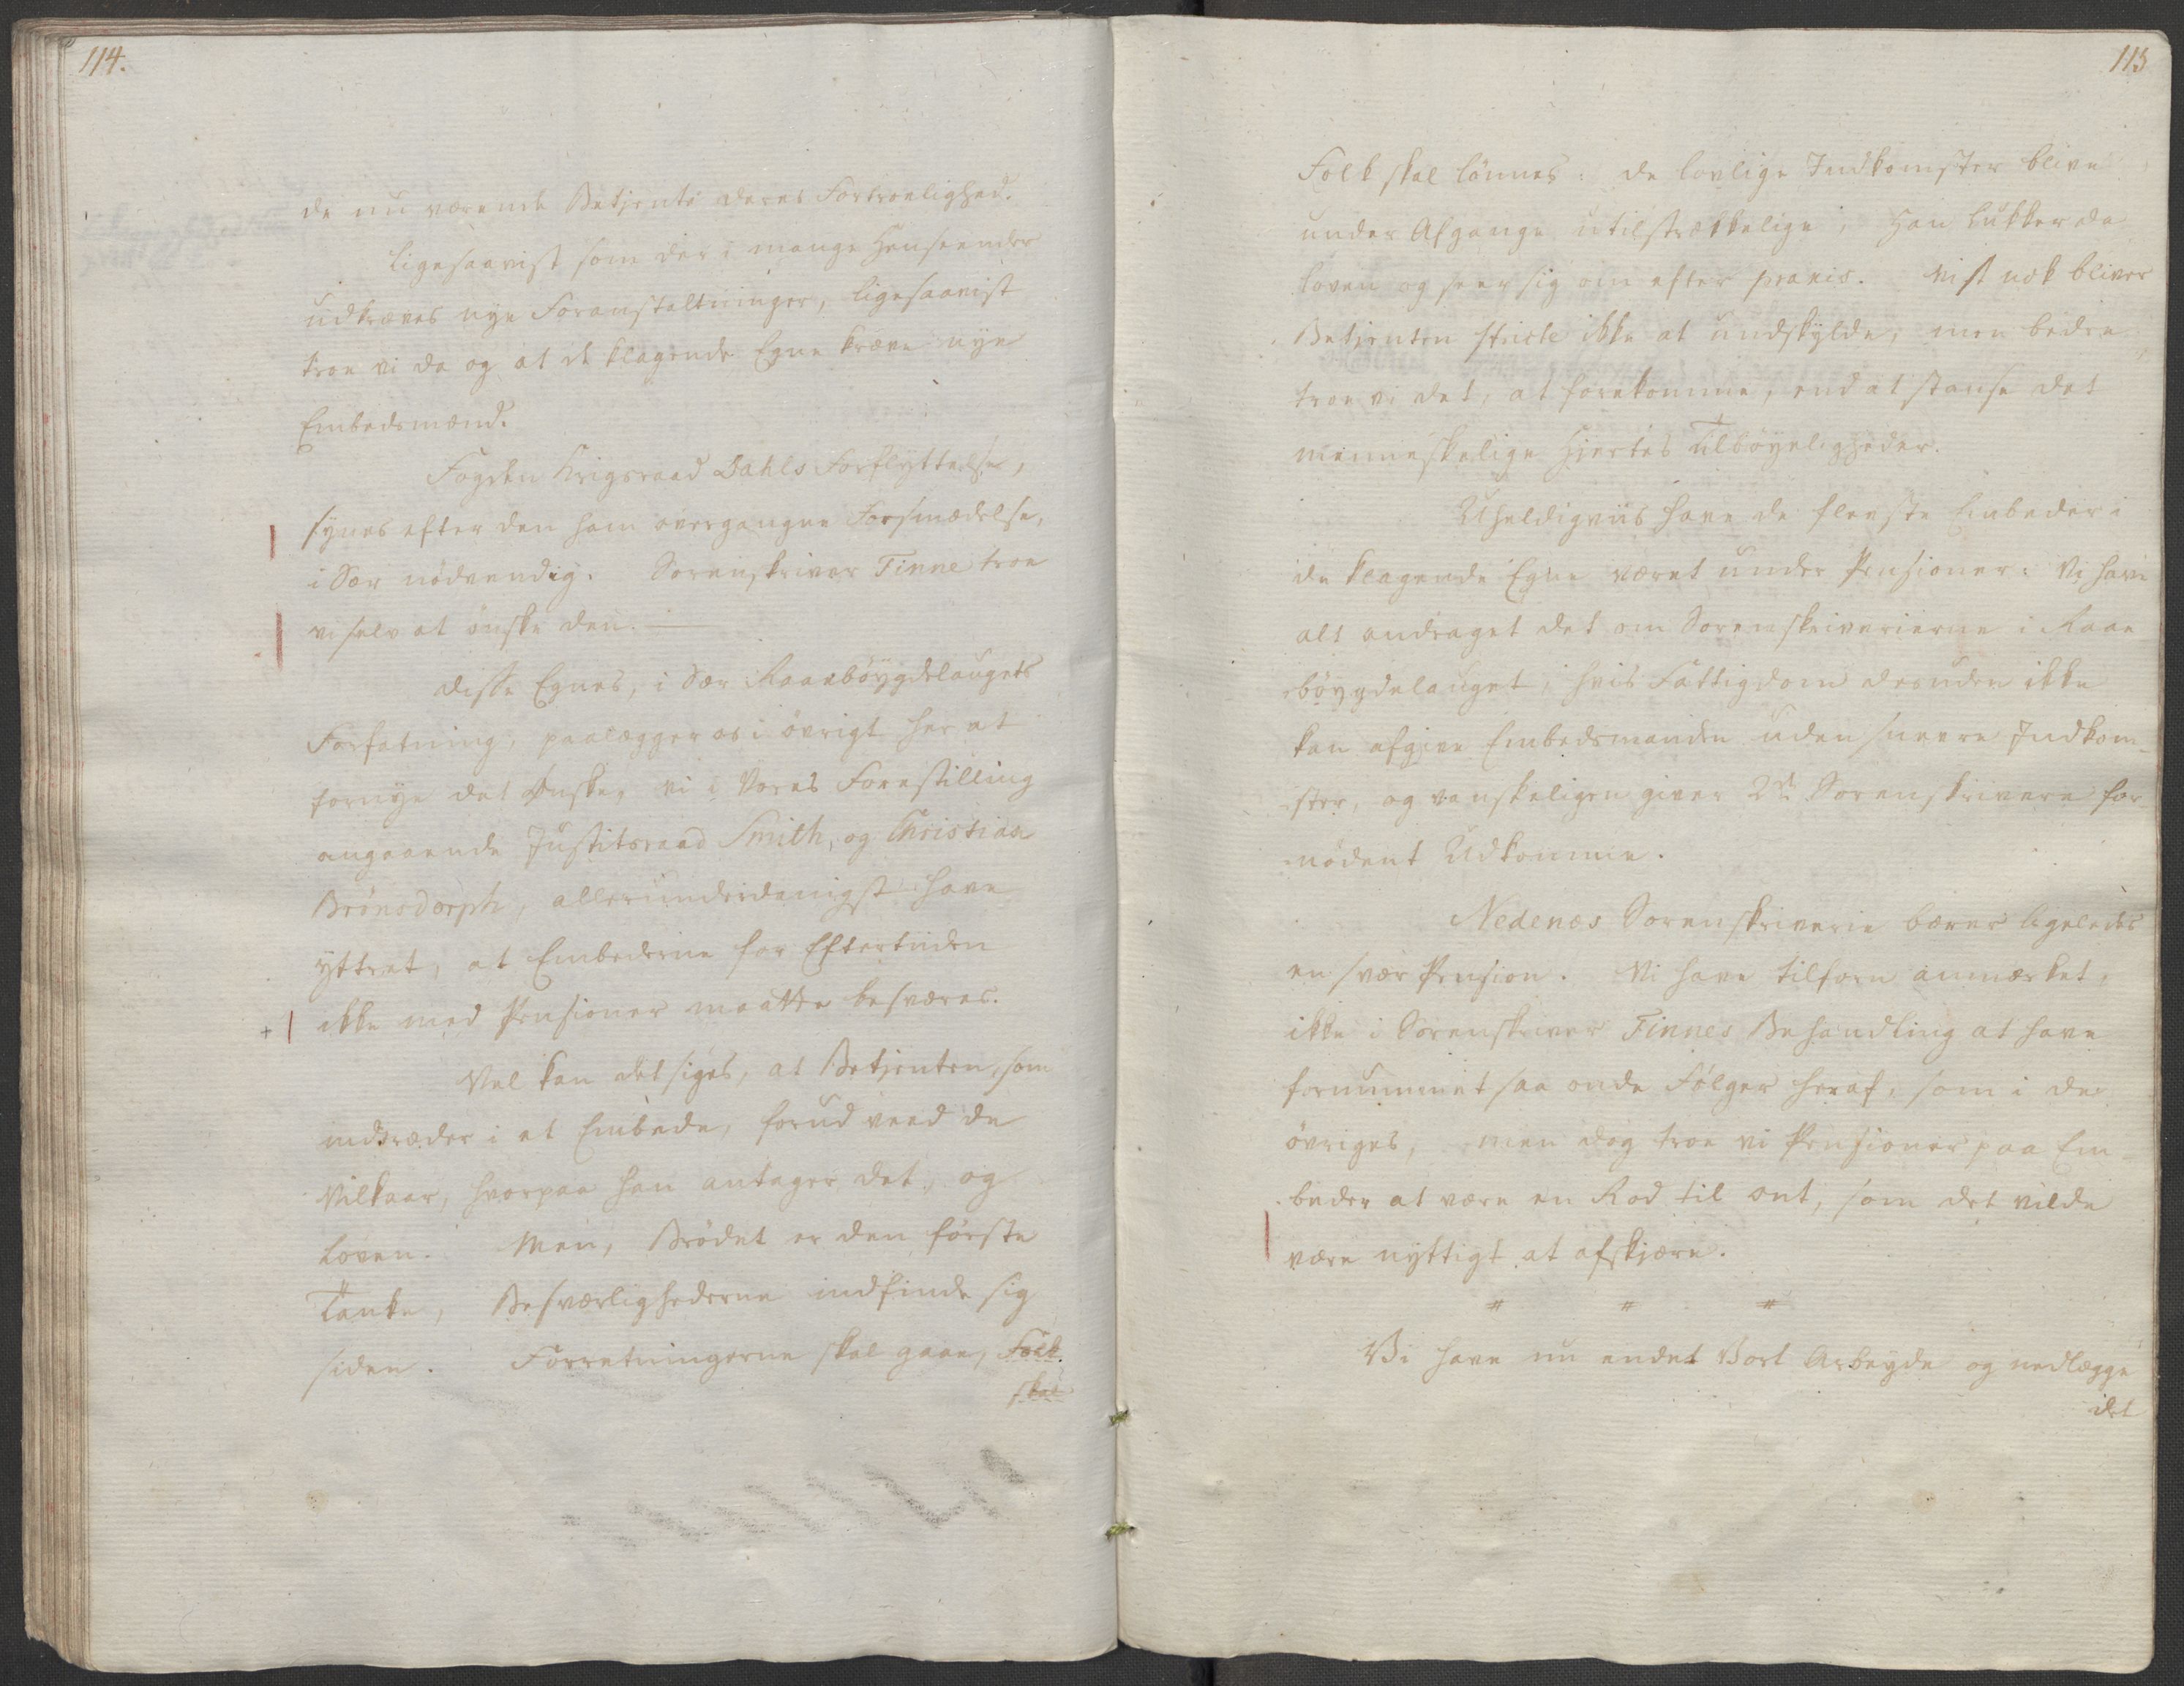 114.
de nu værende Betjente deres Fortroelighed.
Ligesaavist som der i mange Henseender
udkræves nye Foranstaltninger, ligesaavist
troe vi da og at de klagende Egne kræve nye
Embedsmænd.
Fogden Krigsraad Dahls Forflyttelse,
synes efter den ham overgangne Forsmædelse,
i Sær nødvendig. Sorenskriver Finne troe
vi selv at ønske den.
Disse Egnes, i Sær Raaebøygdelaugets
Forfatning, paalægger os i øvrigt her at
fornye det Ønske, vi i Vores Forestilling
angaaende Justitsraad Smith, og Christian
Brönsdorph, allerunderdanigst have
yttret, at Embederne for Eftertiiden
ikke med Pensioner maatte besværes.
Vel kan det siges, at Betjenten, som
indtræder i et Embede, forud veed de
Vilkaar, hvorpaa han antager det, og
Loven. Men, Brødet er den første
Tanke, Besværlighederne indfinde sig
siden. Forretningerne skal gaae, Folk
skal
115
Folk skal lønnes: de lovlige Indkomster blive
under Afgange utilstrækkelige; Han lukker da
Loven og seer sig om efter praxis. Vist nok bliver
Betjenten stricte ikke at undskylde; men bedre
troe vi det, at forekomme, end at standse det
menneskelige Hjertes Tilbøyeligheder.
Uheldigviis have de fleeste Embeder i
de klagende Egne været under Pensioner: Vi have
alt andraget det om Sorenskriverierne i Raae
bøygdelauget, hvis Fattigdom desuden ikke
kan afgive Embedsmanden uden snevre Indkom-
ster, og vanskeligen giver 2de Sorenskrivere for
nødent Udkomme.
Nedenes Sorenskriverie bærer ligeledes
en svær Pension. Vi have tilforn anmærket,
ikke i Sorenskriver Finnes Behandling at have
fornummet saa onde Følger heraf, som i de
øvriges, men dog troe vi Pensioner paa Em-
beder at være en Rod til ont, som det vilde
være nyttigt at afskjære.
# # #
Vi have nu endet Vort Arbeyde og nedlægge
det